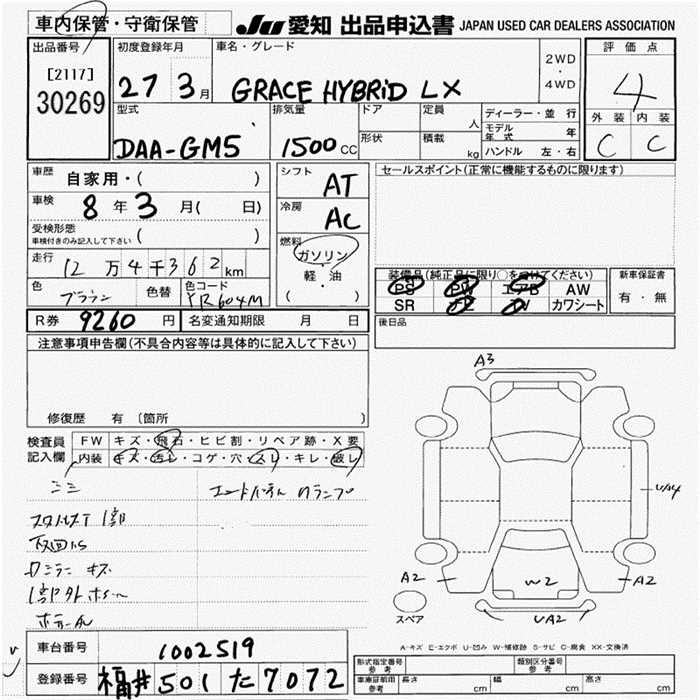 車内保管・守衛保管
JU 愛知 出品申込書 JAPAN USED CAR DEALERS ASSOCIATION
出品番号
[2117]
30269
初度登録年月
27 3月
車名・グレード
GRACE HYBRiD LX
2WD
・
4WD
評価点
4
外装 内装
C C
型式
DAA-GM5
排気量
1500cc
ドア
形状
定員
人
積載
kg
ディーラー・並行
モデル年式 年
ハンドル 左・右
車歴 自家用・( )
車検 8年3月( 日)
受検形態
車検付きのみ記入して下さい ( )
走行 12万4千362km
色 ブラウン
色替
色コード
YR604M
シフト
AT
冷房
AC
燃料
ガソリン
軽・油
( )
セールスポイント(正常に機能するものに限ります)
装備品(純正品に限り○をつけてください)
PS PW エアB AW
SR カワシート
新車保証書
有・無
後日品
R券 9260円
名変通知期限 月 日
注意事項申告欄(不具合内容等は具体的に記入して下さい)
修復歴 有 〔箇所 〕
検査員
記入欄
FW キズ・飛石・ヒビ割・リペア跡・X要
内装 キズ・汚レ・コゲ・穴・スレ・キレ・破レ
A3
U/A4
A2
W2
A2
UA2
スペア
A-キズ E-エクボ U-凹み W-補修跡 S-サビ C-腐食 XX-交換済
車台番号 1002519
登録番号 福井 501 た 7072
形式指定番号
参考
類別区分番号
参考
車庫証明用
参考
長さ cm
幅 cm
高さ cm